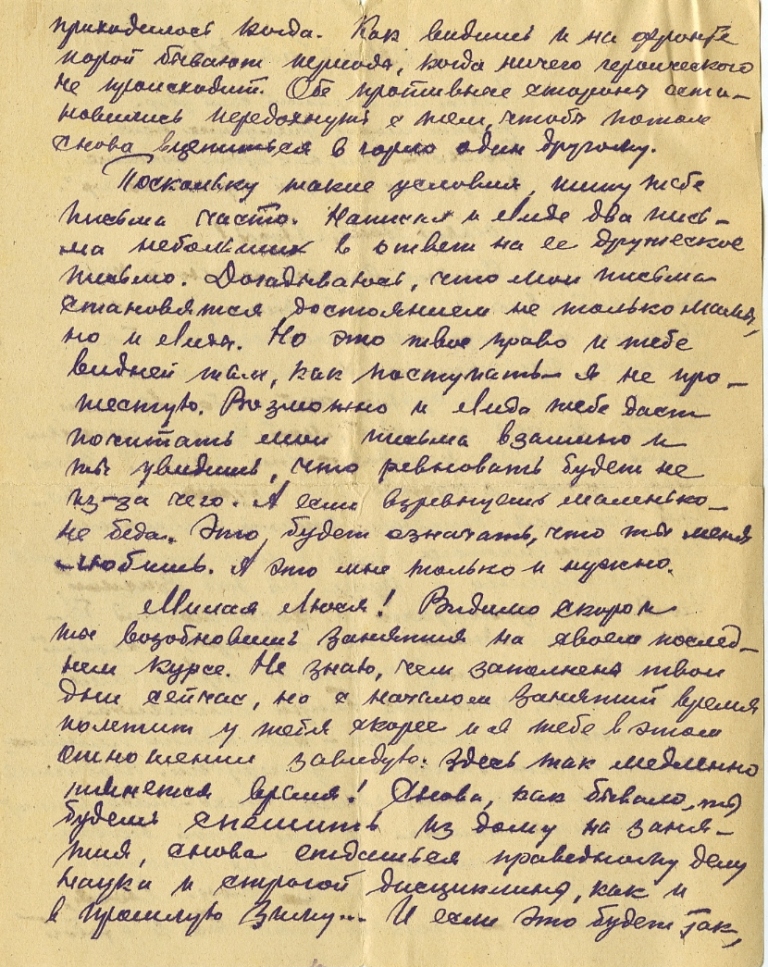 приходилось когда. Как видишь и на фронте
порой бывают периоды, когда ничего героического
не происходит. Обе противные стороны оста-
новились передохнуть с тем, чтобы потом
снова вцепиться в горло один другому.
Поскольку такие условия, пишу тебе
письма часто. Написал и Лиде два пись-
ма небольших в ответ на ее дружеское
письмо. Догадываюсь, что мои письма
становятся достоянием не только мамы,
но и Лиды. Но это твое право и тебе
видней там, как поступать – я не про-
тестую. Возможно и Лида тебе даст
почитать мои письма взаимно и
ты увидишь, что ревновать будет не
из-за чего. А если взревнуешь маленько –
не беда. Это будет означать, что ты меня
любишь. А это мне только и нужно.
Милая Люся! Видимо скоро и
ты возобновишь занятия на своем послед-
нем курсе. Не знаю, чем заполнены твои
дни сейчас, но с началом занятий время
полетит у тебя скорее и я тебе в этом
отношении завидую: здесь так медленно
тянется время! Снова, как бывало, ты
будешь спешить из дому на заня-
тия, снова отдашься праведному делу
науки и строгой дисциплины, как и
в прошлую зиму... И если это будет так,